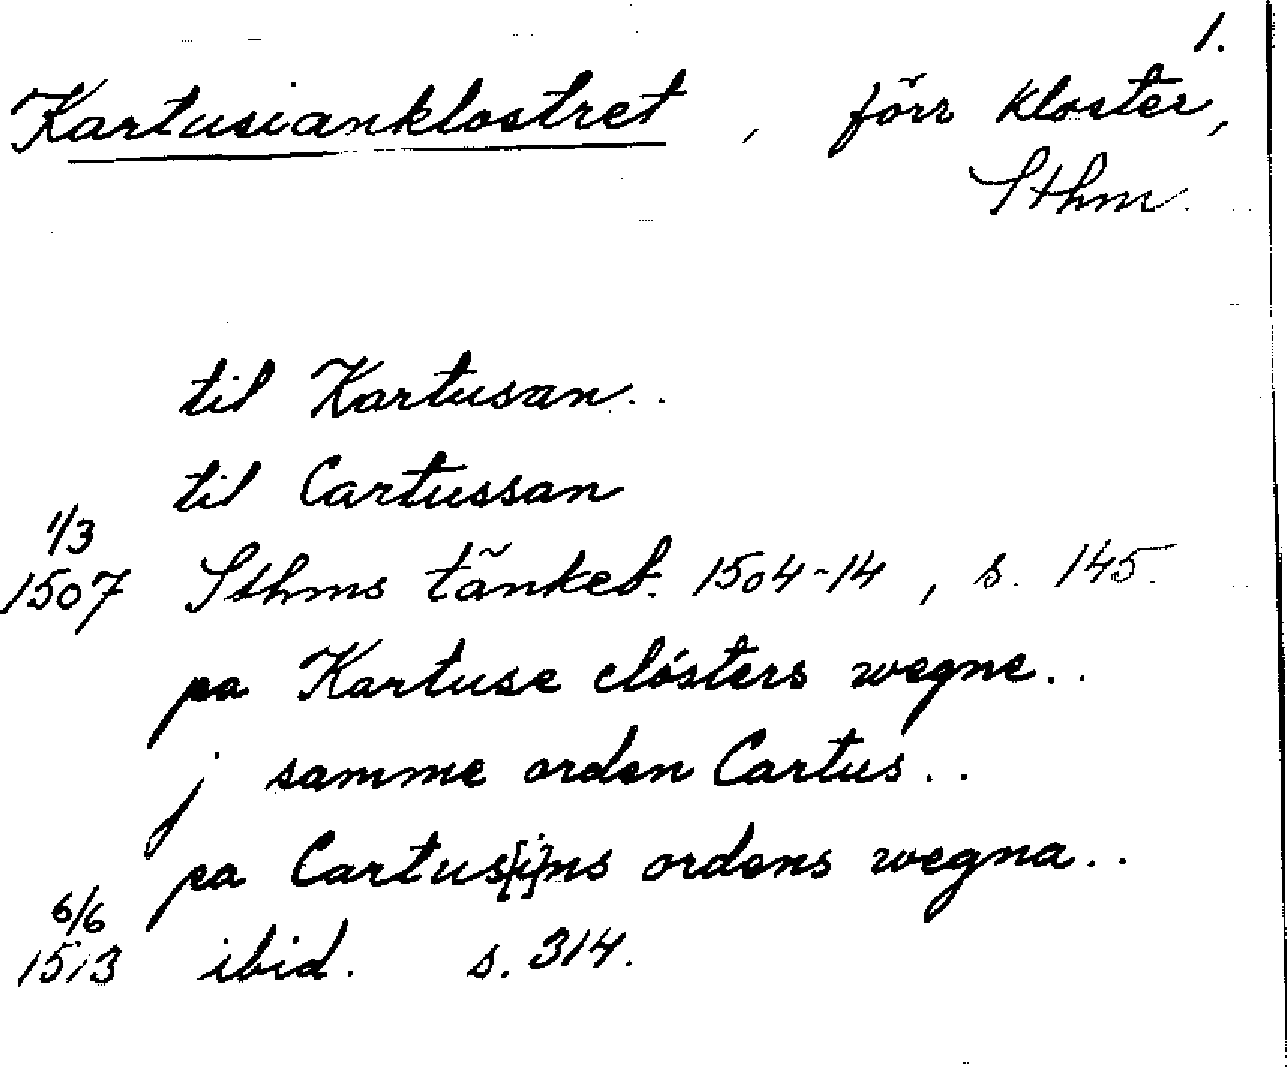 1.
Kartusianklostret, förr kloster,
Sthm.
til Kartusan..
til Cartussan
1/3
1507 Sthms tänkeb. 1504-14, s. 145.
pa Kartuse clósters wegne..
j samme orden Cartus..
pa Cartus[i]ns ordens wegna..
6/6
1513 ibid. s. 314.